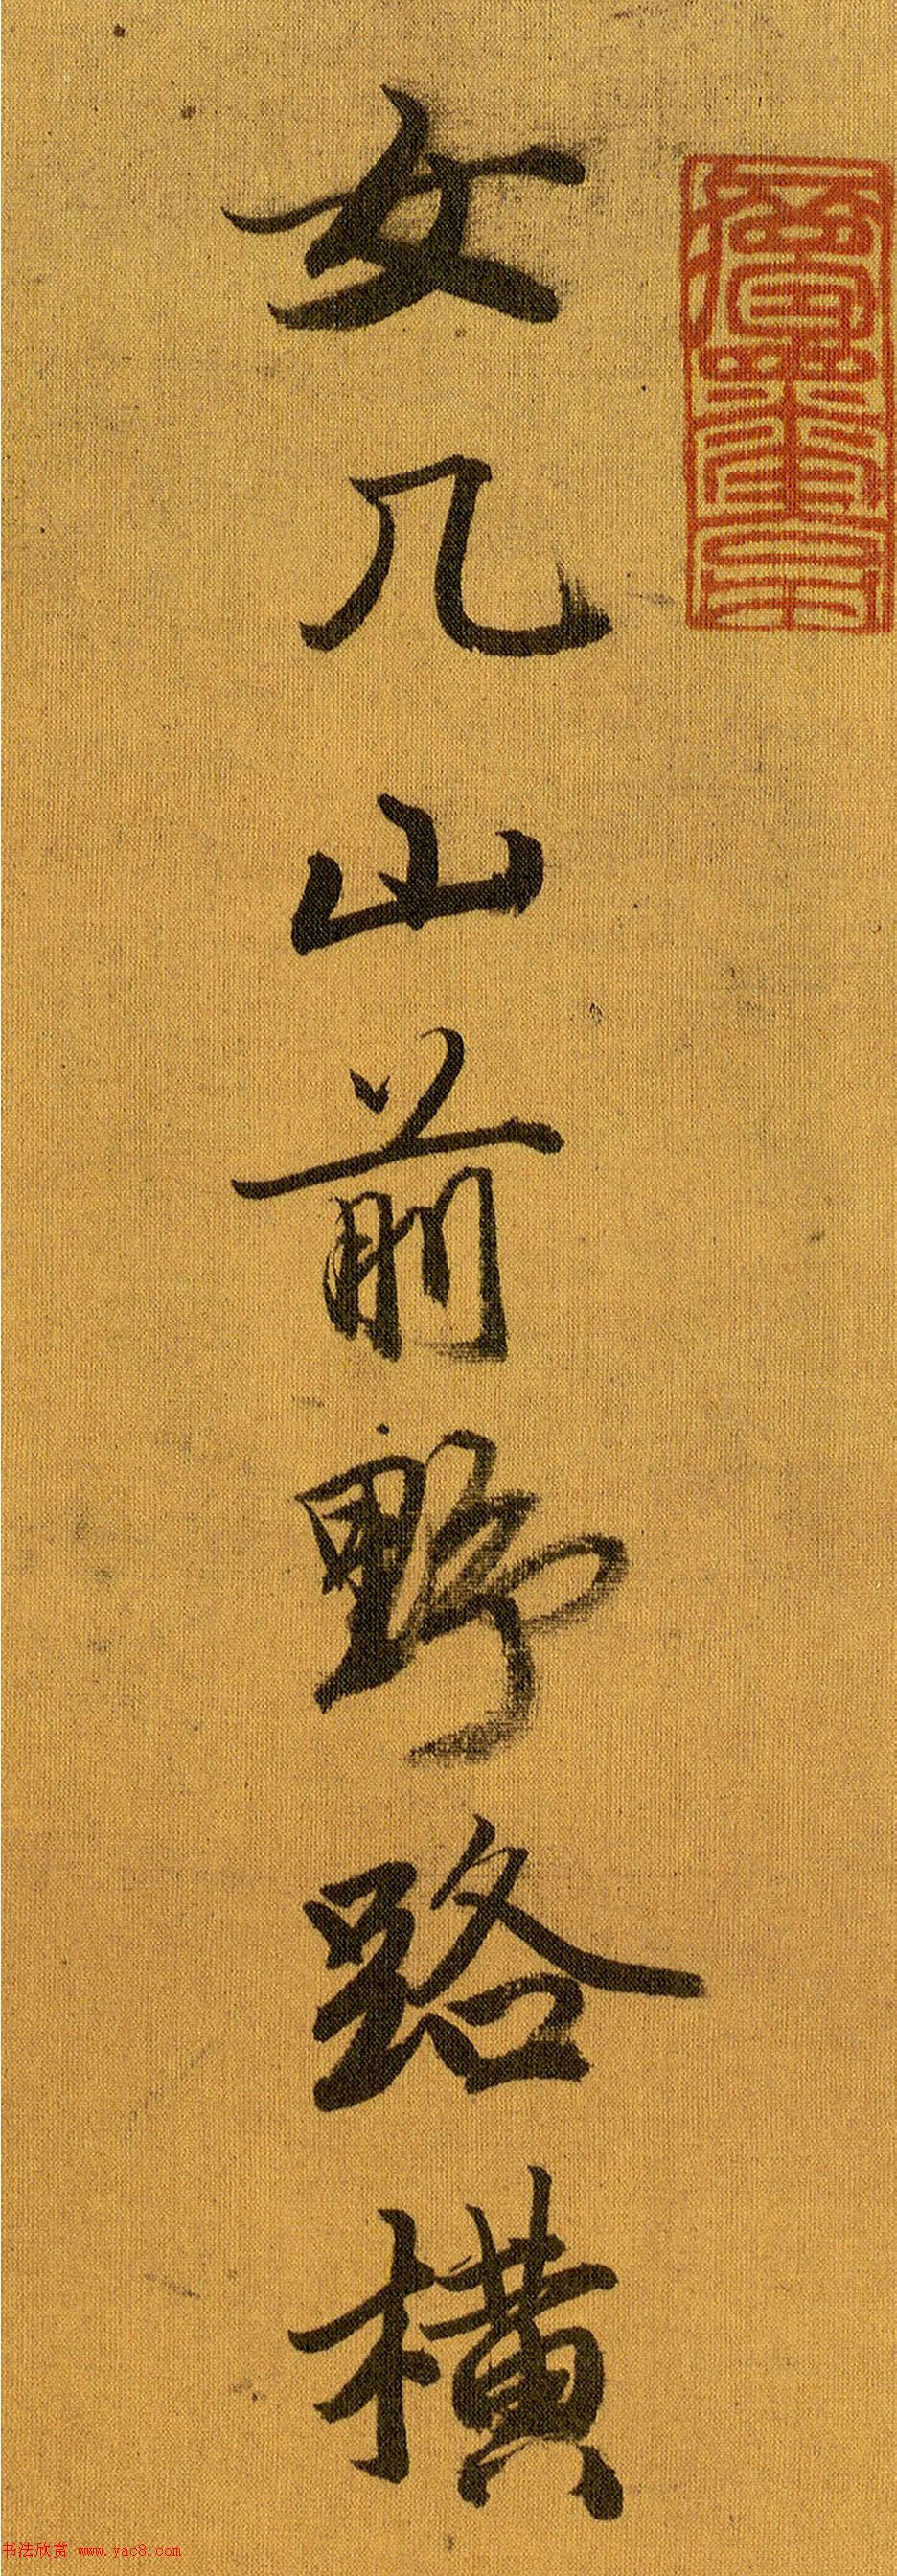 女几山前野路橫
书法欣赏 www.yac8.com